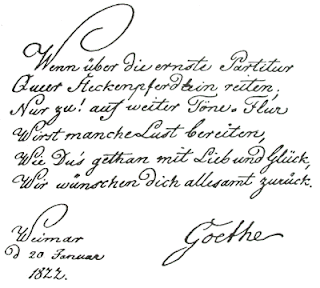 Wenn über die ernste Partitur
Queer Steckenpferdlein reiten,
Nur zu! auf weiter Töne-Flur
Wirst manche Lust bereiten,
Wie Du's gethan mit Lieb und Glück,
Wir wünschen dich allesamt zurück.
Weimar
d 20 Januar
1822.
Goethe